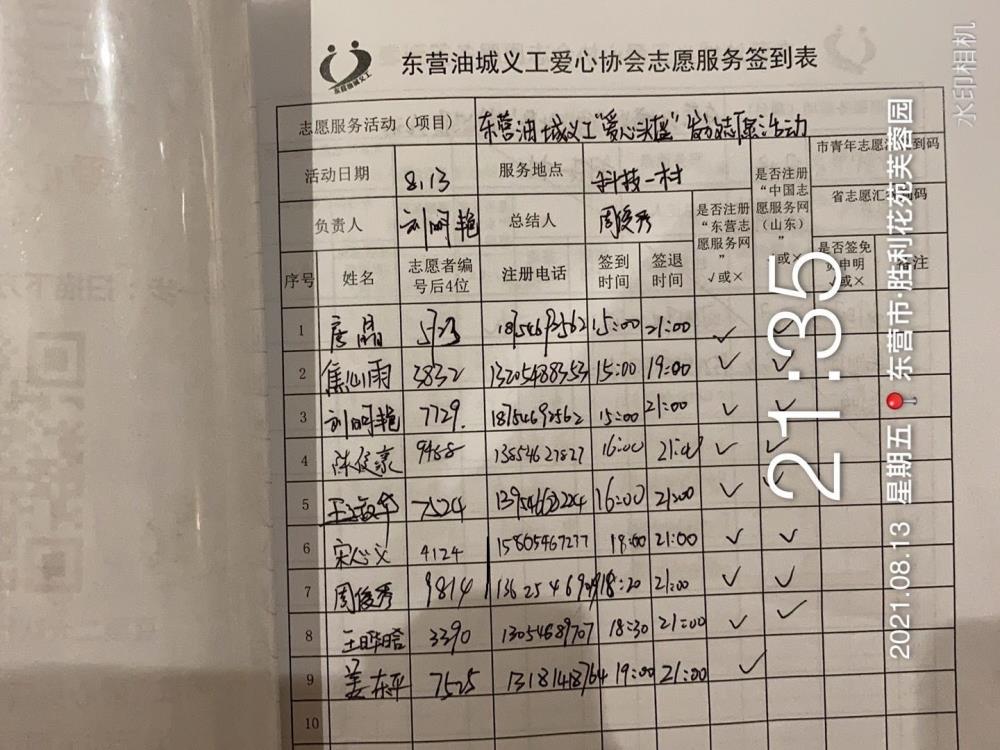 东营油城义工爱心协会志愿服务签到表
东营油城义工
志愿服务活动（项目） 东营油城义工"爱心 志愿活动
活动日期 8.13 服务地点 科技一村
市青年志愿 到码
负责人 刘明艳 总结人 周俊秀
是否注册“东营志愿服务网” √或×
是否注册“中国志愿服务网（山东）” √或×
省志愿汇 码
序号 姓名 志愿者编号后4位 注册电话 签到时间 签退时间 是否签免 申明 √或× 注
1 唐晶 5723 15:00 21:00 √
2 焦仙雨 3832 13205488353 15:00 19:00 √ √
3 刘明艳 7729. 18754692562 15:00 21:00 √ √
4 陈俊豪 9488 13854627827 16:00 √ √
5 7524 16:00 21:00 √ √
6 宋心义 4124 15805467277 18:00 21:00 √ √
7 周俊秀 9814 18:20 21:00 √ √
8 3390 13054689707 18:30 21:00 √ √
9 姜东平 7525 13181418764 19:00 21:00 √
10
21:35
2021.08.13 星期五 东营市·胜利花苑芙蓉园
水印相机